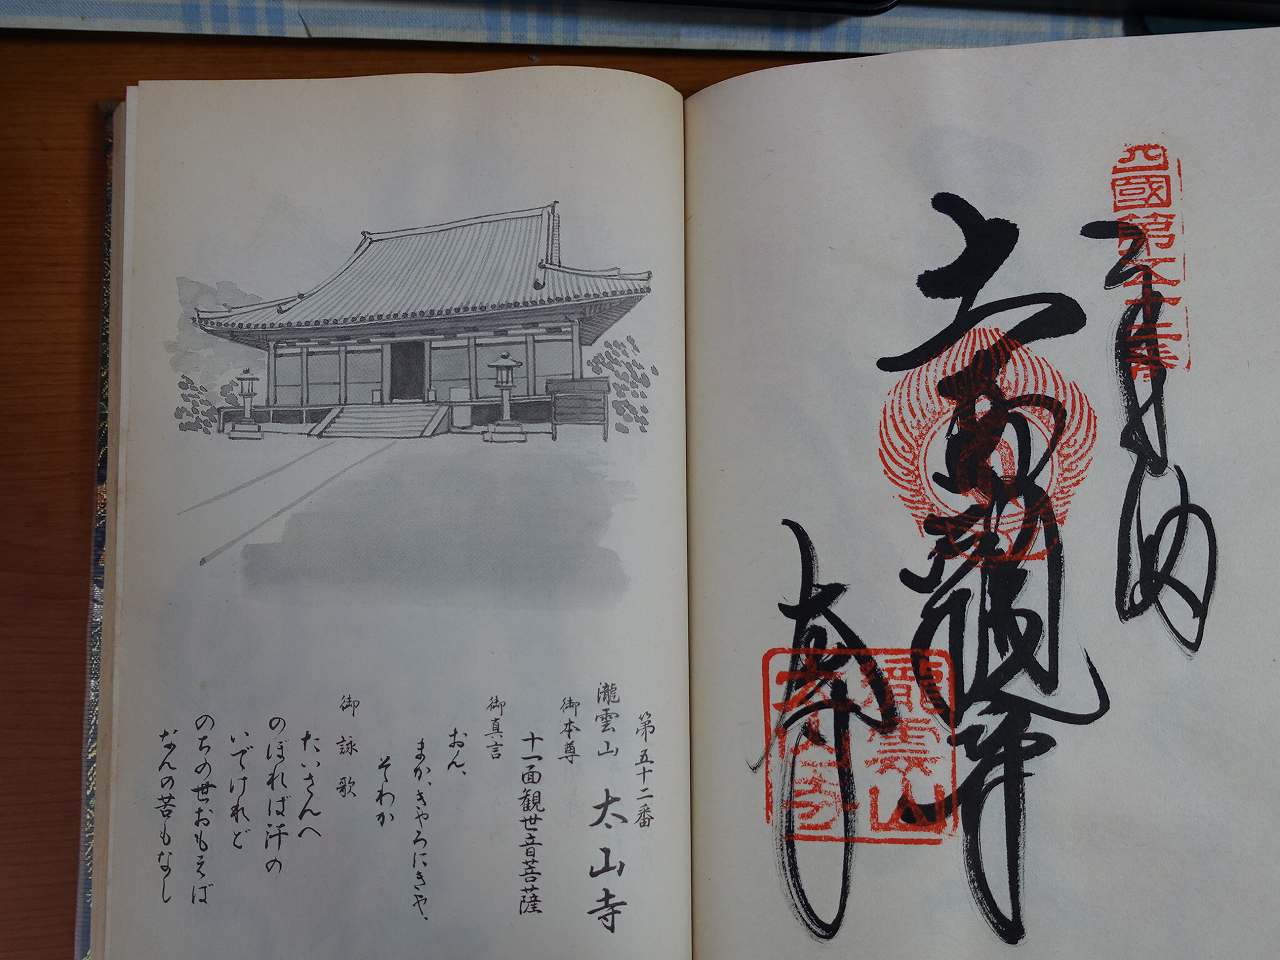 四國第五十二番
奉納
瀧雲山
太山寺
第五十二番
瀧雲山 太山寺
御本尊
十一面観世音菩薩
御真言
おん、
まか、きやろにきや、
そわか
御詠歌
たいさんへ
のぼれば汗の
いでけれど
のちの世おもえば
なんの苦もなし